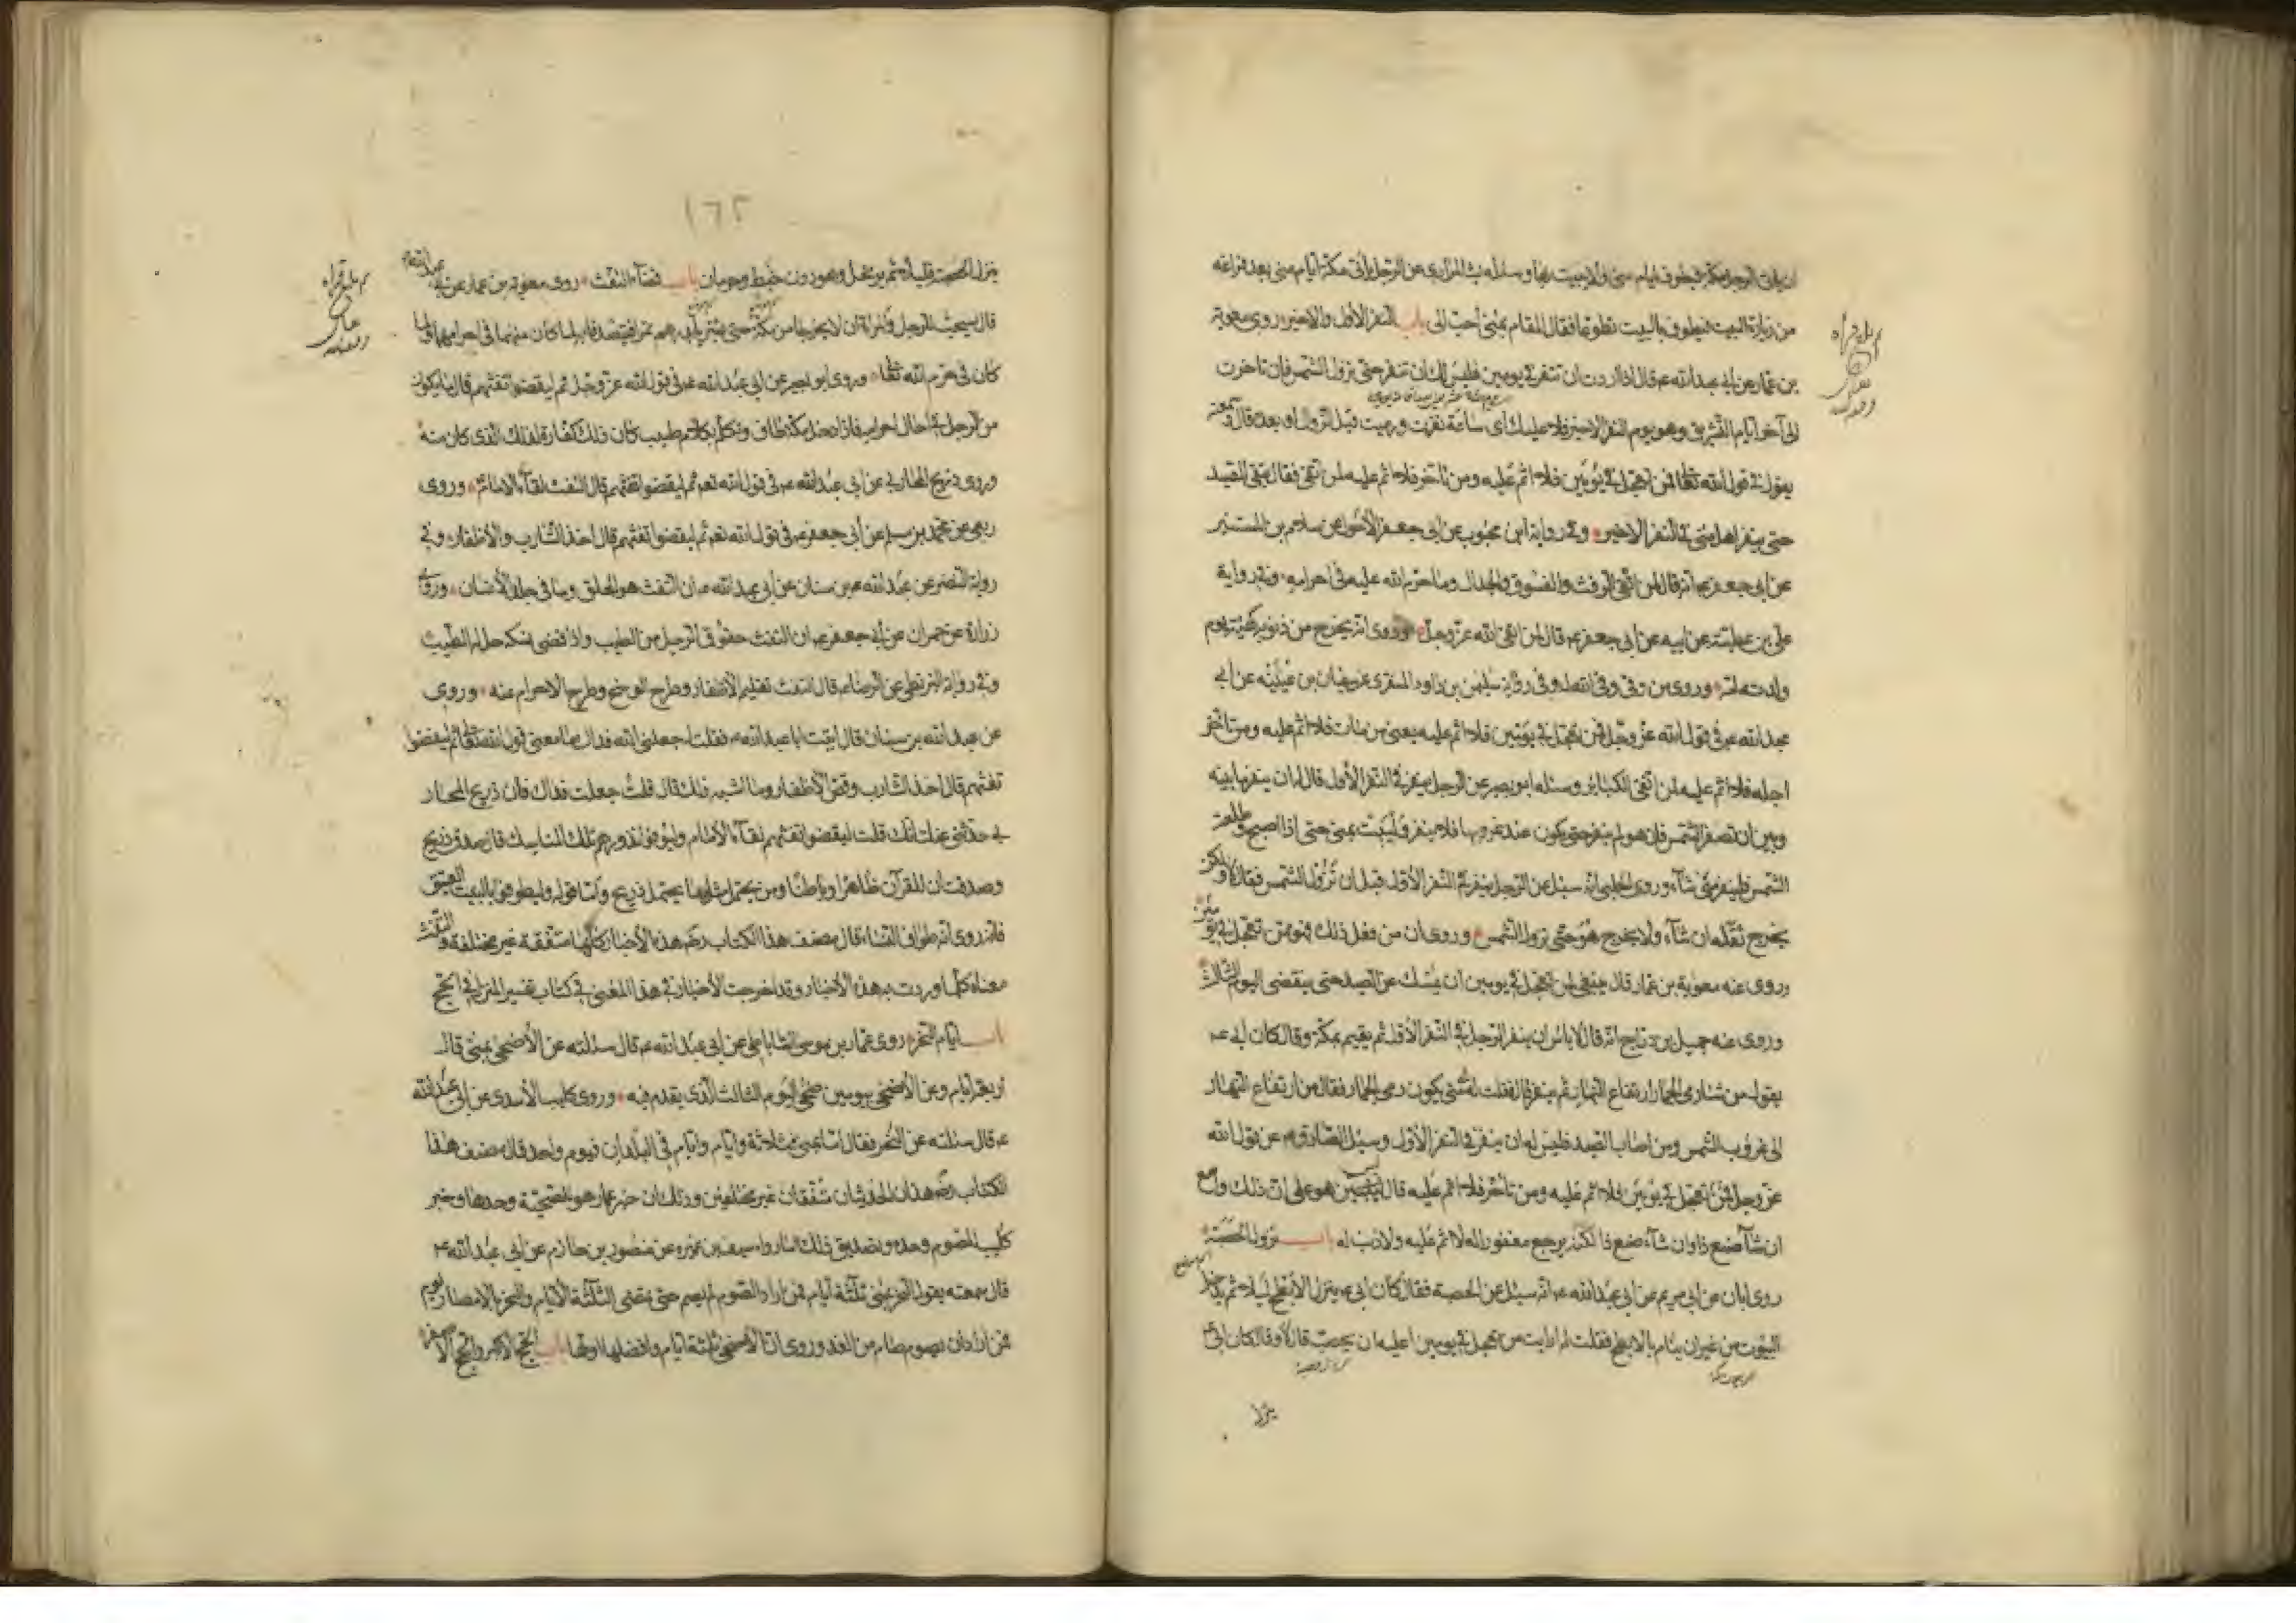 ان ياتى الرجل مكة فيطوف ايام منى ولا يبيت بها وسأله ليث المرادى عن الرجل يأتى مكة ايام منى بعد فراغه
من زيارة البيت فيطوف بالبيت تطوعا فقال المقام بمنى احب الى باب النفر الاول والاخير روى معوية
بن عمار عن ابى عبد الله ع قال اذا اردت ان تنفر فى يومين فليس لك ان تنفر حتى تزول الشمس فان تاخرت
الى آخر ايام التشريق وهو يوم النفر الاخير فلا عليك اى ساعة نفرت ورميت قبل الزوال او بعده قال وسمعته
يقول فى قول الله تعالى فمن تعجل فى يومين فلا اثم عليه ومن تاخر فلا اثم عليه لمن اتقى فقال يتقى الصيد
حتى ينفر اهل منى فى النفر الاخير وفى رواية ابن محبوب عن ابى جعفر الاحول عن سلام بن المستنير
عن ابى جعفر ع انه قال لمن اتقى الرفث والفسوق والجدال وما حرم الله عليه فى احرامه وفى رواية
على بن عطية عن ابيه عن ابى جعفر ع قال لمن اتقى الله عز وجل وروى انه يخرج من ذنوبه كهيئة يوم
ولدته امه وروى من وفى وفى الله له وفى رواية سليمن بن داود المنقرى عن سفيان بن عيينة عن ابى
عبد الله ع فى قول الله عز وجل فمن تعجل فى يومين فلا اثم عليه يعنى من مات فلا اثم عليه ومن تاخر
اجله فلا اثم عليه لمن اتقى الكبائر وسئله ابو بصير عن الرجل ينفر فى النفر الاول قال له ان ينفر ما بينه
وبين ان تصفر الشمس فان هو لم ينفر حتى يكون عند غروبها فلا ينفر وليبت بمنى حتى اذا اصبح وطلعت
الشمس فلينفر متى شاء وروى الحلبى انه سئل عن الرجل ينفر فى النفر الاول قبل ان تزول الشمس فقال لا ولكن
يخرج ثقله ان شاء ولا يخرج هو حتى تزول الشمس وروى ان من فعل ذلك فهو ممن تعجل فى يومين
وروى عنه معوية بن عمار قال ينبغى لمن تعجل فى يومين ان يمسك عن الصيد حتى ينقضى اليوم الثالث
وروى عنه جميل بن دراج انه قال لا باس ان ينفر الرجل فى النفر الاول ثم يقيم بمكة وقال كان ابى ع
يقول من شاء رمى الجمار ارتفاع النهار ثم ينفر قال فقلت له الى متى يكون رمى الجمار فقال من ارتفاع النهار
الى غروب الشمس ومن اصاب الصيد فليس له ان ينفر فى النفر الاول وسئل الصادق ع عن قول الله
عز وجل فمن تعجل فى يومين فلا اثم عليه ومن تاخر فلا اثم عليه قال ليس هو على ان ذلك واسع
ان شاء صنع ذا وان شاء صنع ذا لكنه يرجع مغفورا له لا اثم عليه ولا ذنب له باب نزول الحصبة
روى ابان عن ابى مريم عن ابى عبد الله ع انه سئل عن الحصبة فقال كان ابى ع ينزل الابطح قليلا ثم يدخل
البيوت من غير ان ينام بالابطح فقلت له ارايت من تعجل فى يومين اعليه ان يحصب قال لا وقال كان ابى ع
ينزل
١٦٢
ينزل الحصبة قليلا ثم يرتحل وهو دون خبط وحرمان باب قضاء التفث روى معوية بن عمار عن ابى عبد الله ع
قال يستحب للرجل والمرأة ان لا يخرجا من مكة حتى يشتريا بدرهم تمر فيتصدقا به لما كان منهما فى احرامهما ولما
كان فى حرم الله تعالى وروى ابو بصير عن ابى عبد الله ع فى قول الله عز وجل ثم ليقضوا تفثهم قال ما يكون
من الرجل فى حال احرامه فاذا دخل مكة طاف وتكلم بكلام طيب كان ذلك كفارة لذلك الذى كان منه
وروى ذريح المحاربى عن ابى عبد الله ع فى قول الله تعم ثم ليقضوا تفثهم قال التفث لقاء الامام وروى
ربعى عن محمد بن مسلم عن ابى جعفر ع فى قول الله تعم ثم ليقضوا تفثهم قال اخذ الشارب والاظفار وفى
رواية النضر عن عبد الله بن سنان عن ابى عبد الله ع ان التفث هو الحلق وما فى جلد الانسان وروى
زرارة عن حمران عن ابى جعفر ع ان التفث حفوف الرجل من الطيب واذا قضى نسكه حل له الطيب
وفى رواية البزنطى عن الرضا ع قال التفث تقليم الاظفار وطرح الوسخ وطرح الاحرام عنه وروى
عن عبد الله بن سنان قال اتيت ابا عبد الله ع فقلت له جعلنى الله فداك ما معنى قول الله تعالى ثم ليقضوا
تفثهم قال اخذ الشارب وقص الاظفار وما اشبه ذلك قال قلت جعلت فداك فان ذريح المحار
بى حدثنى عنك انك قلت ليقضوا تفثهم لقاء الامام وليوفوا نذورهم تلك المناسك قال صدق ذريح
وصدقت ان للقرآن ظاهرا وباطنا ومن يحتمل مثل ما يحتمل ذريح واما قوله وليطوفوا بالبيت العتيق
فانه روى انه طواف النساء قال مصنف هذا الكتاب رحمه هذه الاخبار كلها متفقة غير مختلفة والتفث
معناه كلما وردت به هذه الاخبار وقد اخرجت الاخبار فى هذا المعنى فى كتاب تفسير المنزل فى الحج
باب ايام النحر روى عمار بن موسى الساباطى عن ابى عبد الله ع قال سئلته عن الاضحى بمنى قال
اربعة ايام وعن الاضحى
وروى كليب الاسدى عن ابى عبد الله
ع قال سئلته عن النحر فقال اما بمنى فثلاثة ايام واما فى البلدان فيوم واحد قال مصنف هذا
الكتاب رحمه هذان الحديثان متفقان غير مختلفين وذلك ان خبر عمار هو للضحية وحدها وخبر
كليب للصوم وحده وتصديق ذلك ما رواه سيف بن عميرة عن منصور بن حازم عن ابى عبد الله ع
قال سمعته يقول النحر بمنى ثلثة ايام فمن اراد الصوم لم يصم حتى تمضى الثلثة الايام والنحر بالامصار يوم
فمن اراد ان يصوم صام من الغد وروى ان الاضحى ثلثة ايام وافضلها اولها باب الحج الاكبر والحج الاصغر